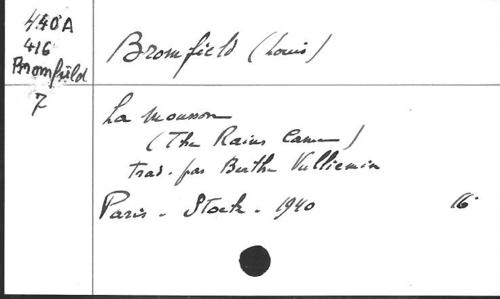 440A
416
Bromfield
7
Bromfield (Louis)
La Mousson
(The Rains Came)
trad. par Berthe Vulliemin
Paris - Stock - 1940 16°